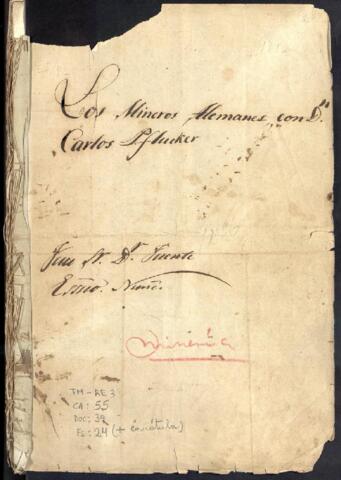 Los Mineros Alemanes con D.n
Carlos Pflucker
Juez Sr. Dr. Fuente
Esno. Nuñez.
minería
TM-RE 3
CA: 55
DOC: 39
FS: 24 (+ carátula)